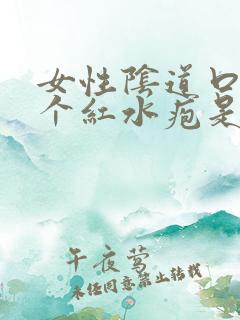 女性陰道口
个紅水疱是
午夜莺
未经同意禁止转载